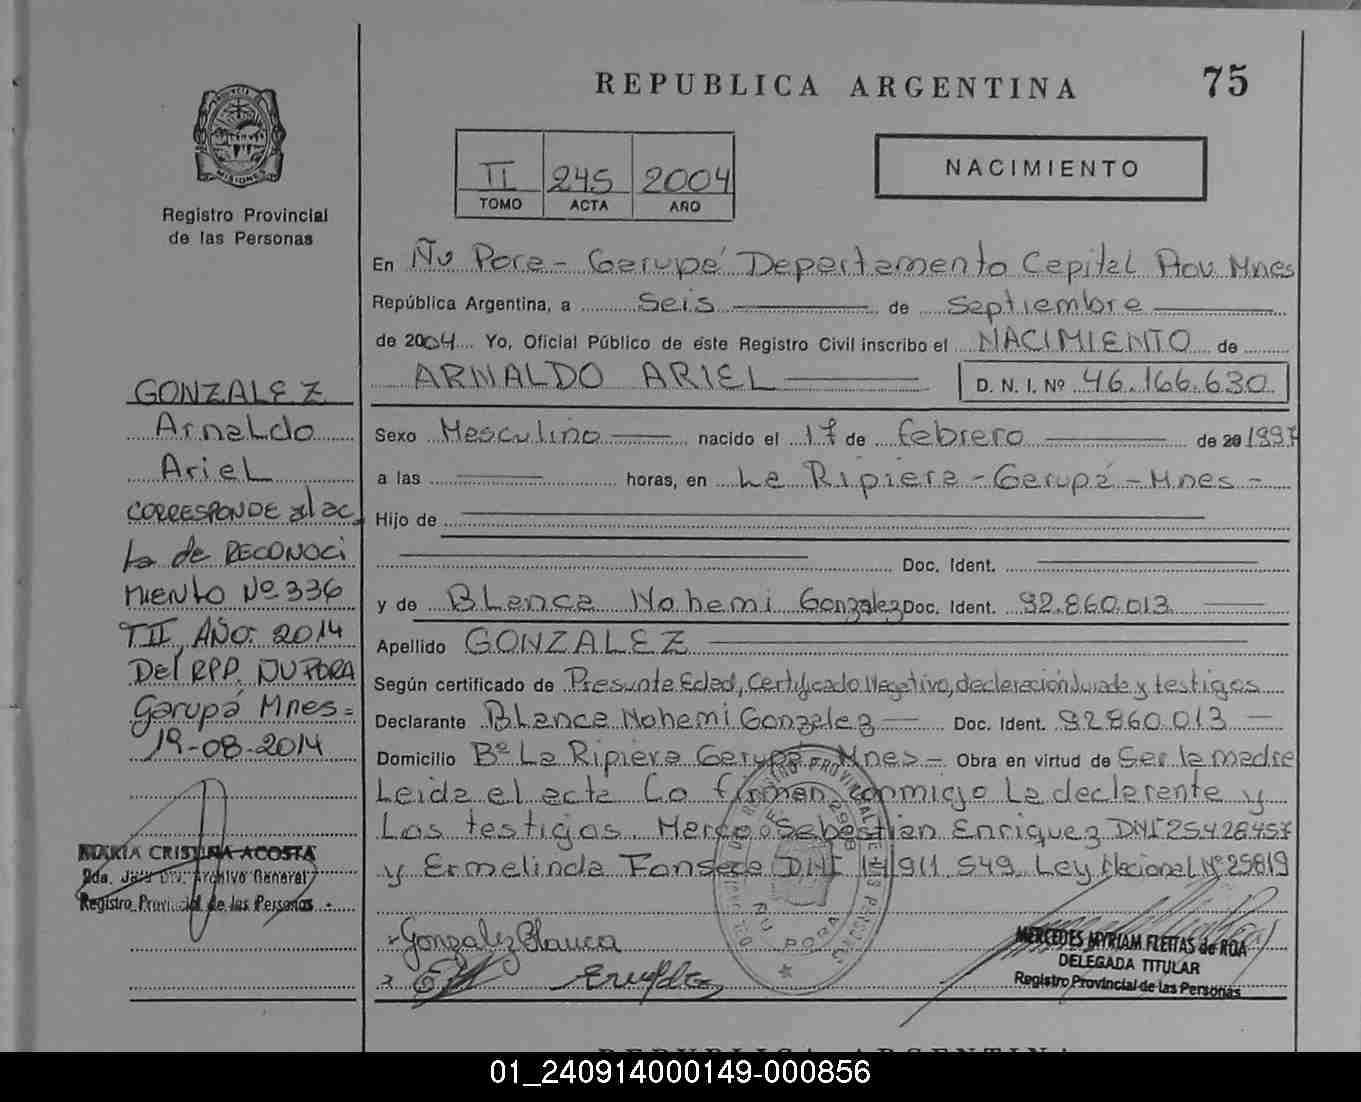 REPUBLICA ARGENTINA
75
PROVINCIA DE
MISIONES
Registro Provincial
de las Personas
II 245 2004
TOMO ACTA AÑO
NACIMIENTO
En Ñu Pora - Garupá Departamento Capital Prov Mnes
República Argentina, a Seis de Septiembre
de 2004 Yo, Oficial Público de este Registro Civil inscribo el NACIMIENTO de
ARNALDO ARIEL D. N. I. Nº 46.166.630
Sexo Masculino nacido el 17 de febrero de 20 1997
a las horas, en La Ripiera - Garupá - Mnes -
Hijo de
Doc. Ident.
y de Blanca Nohemi Gonzalez Doc. Ident. 92.860.013
Apellido GONZALEZ
Según certificado de Presunta Edad, Certificado Negativo, declaración Jurada y testigos
Declarante Blanca Nohemi Gonzalez Doc. Ident. 92860.013
Domicilio Bº La Ripiera Garupá Mnes - Obra en virtud de Ser la madre
Leida el acta La firman conmigo La declarante y
Los testigos. Marcos Sebastian Enriquez DNI 25428457
y Ermelinda Fonseca DNI 14 911 549 Ley Nacional Nº 25819
Gonzalez Blanca
MERCEDES MYRIAM FLEITAS de ROA
DELEGADA TITULAR
Registro Provincial de las Personas
ÑU PORA
GONZALEZ
Arnaldo
Ariel
CORRESPONDE al ac
ta de RECONOCI
MIENTO Nº 336
TII AÑO: 2014
Del RPP. ÑU PORA
Garupá Mnes =
19-08-2014
MARIA CRISTINA ACOSTA
2da. Jefa Div. Archivo General
Registro Provincial de las Personas
REPUBLICA ARGENTINA
01_240914000149-000856